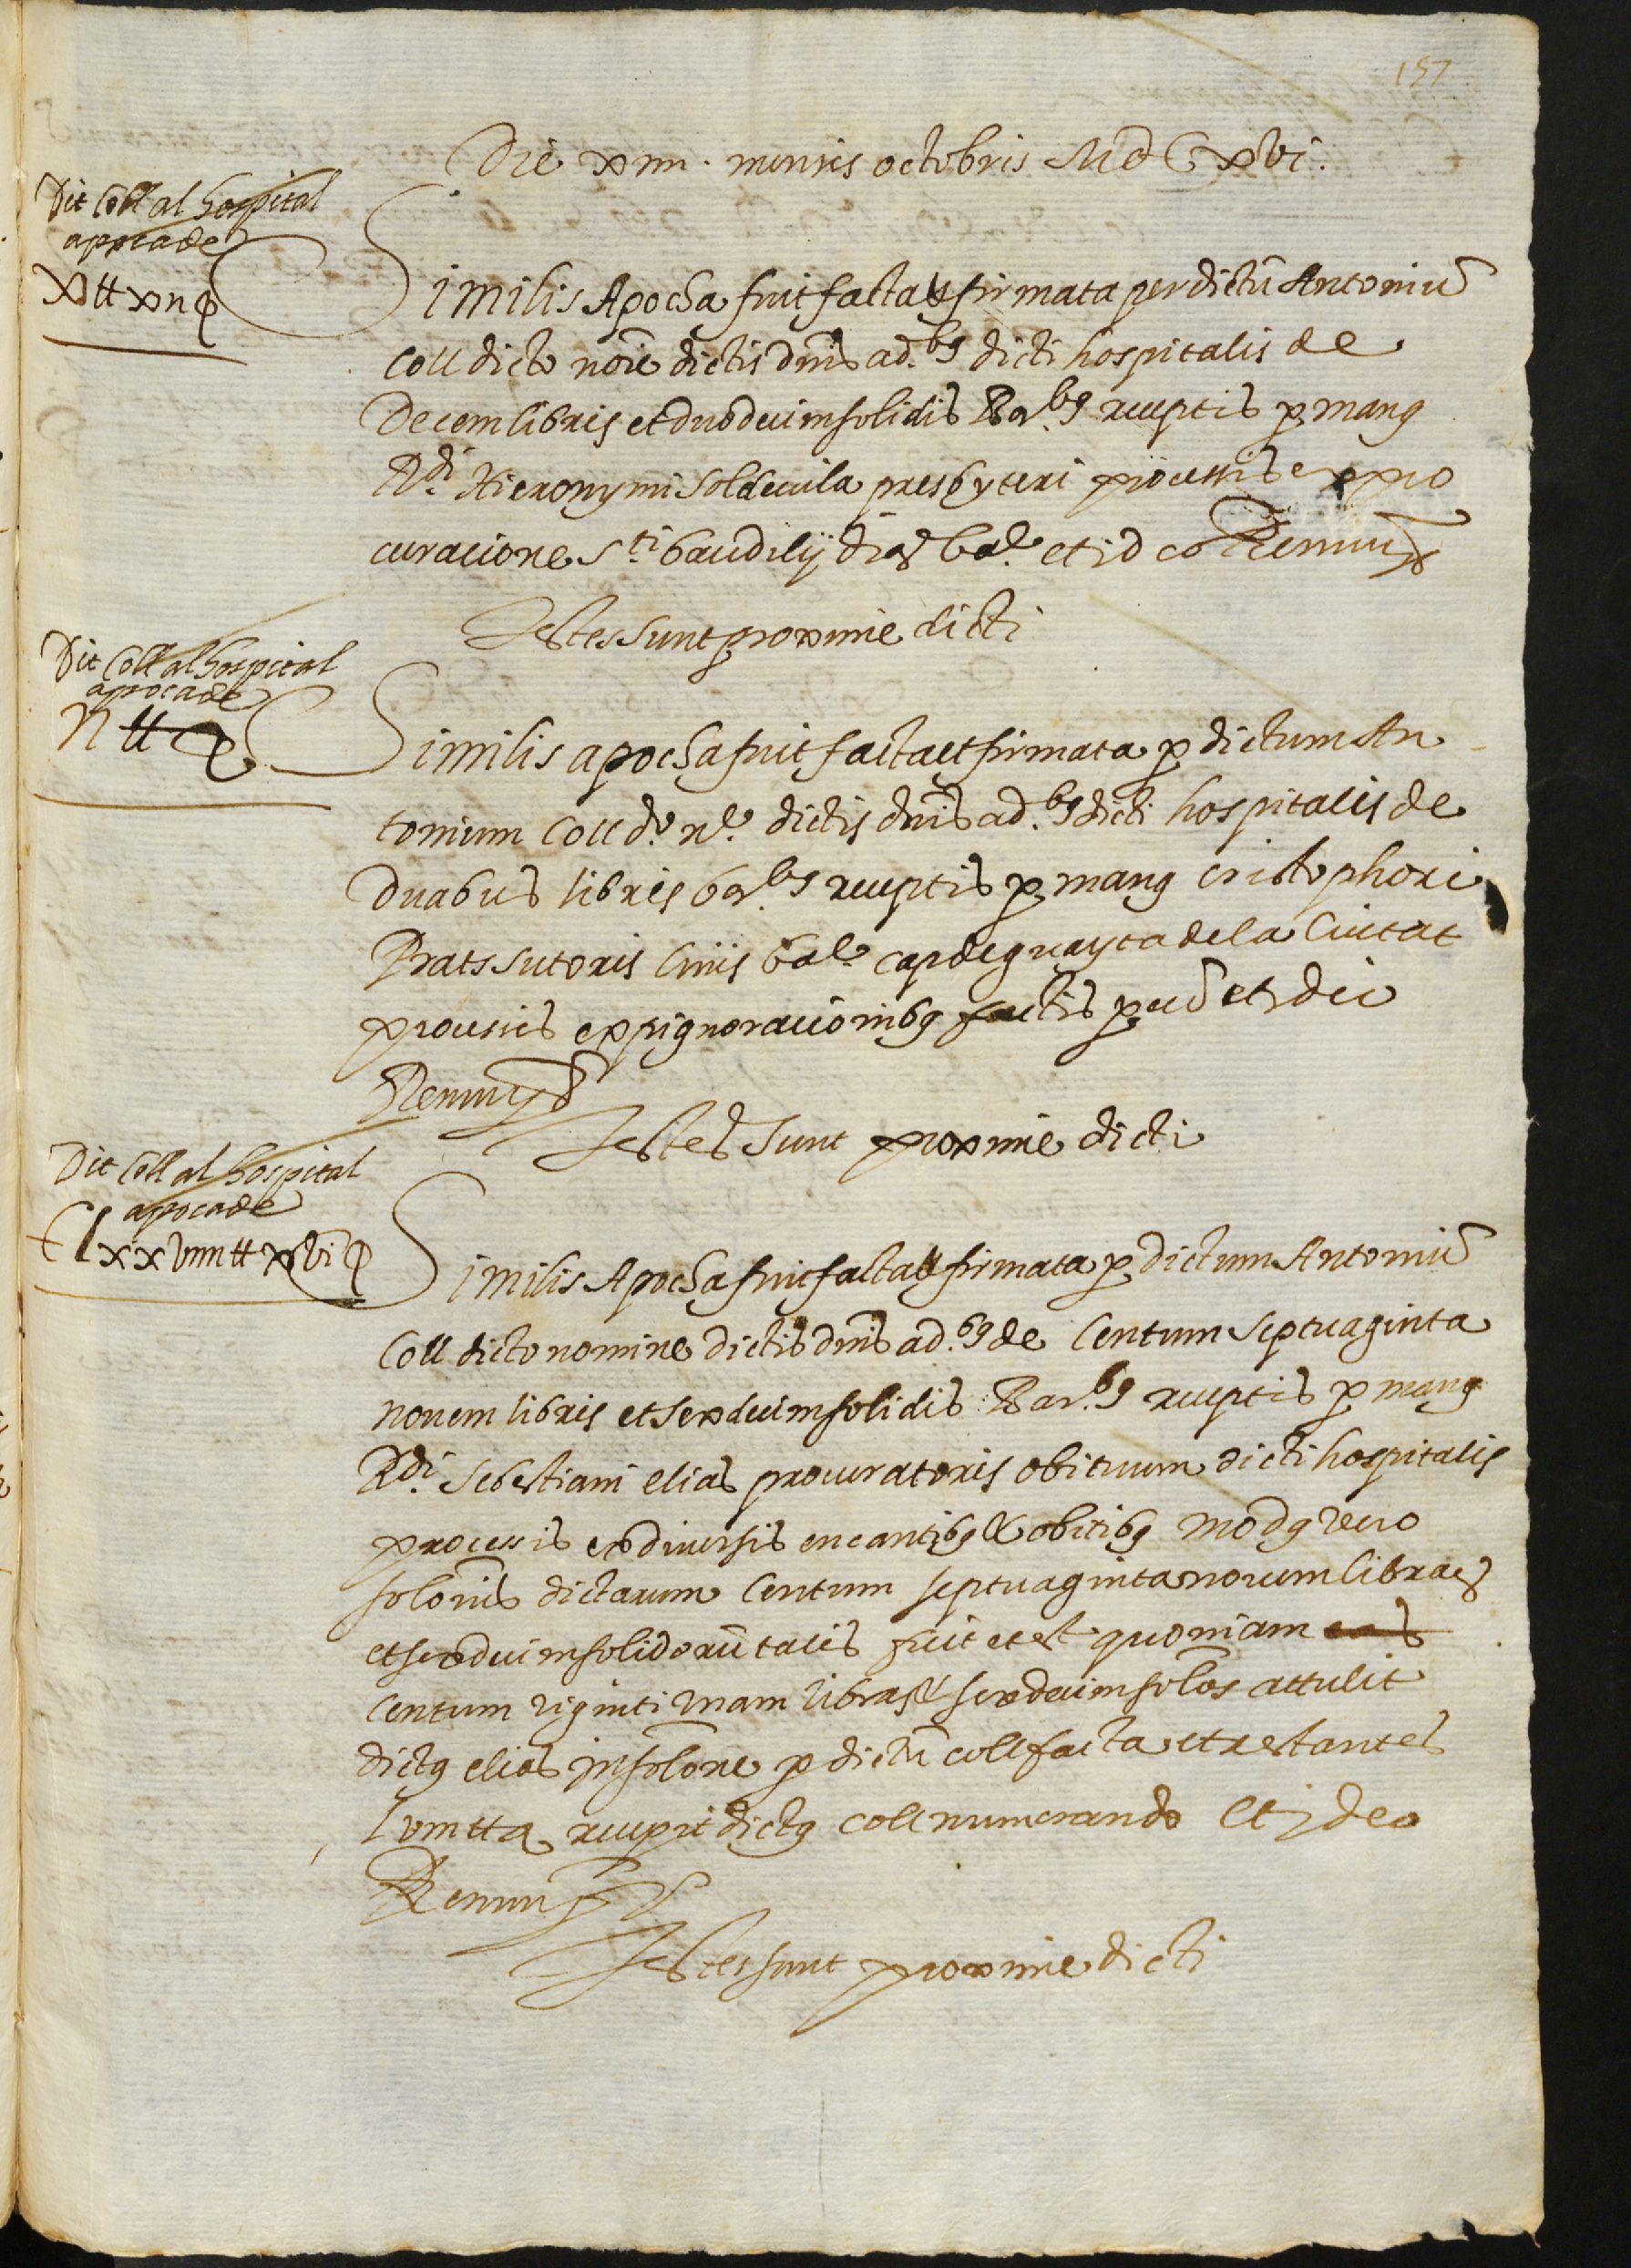 157
Die xiiii. mensis octobris MdCxvi.
Dit Coll al hospital
apocade
x tt xii ß
Similis Apocha fuit facta et firmata per dictū Antoniū
Coll dicto noīe dictis dnīs ad.bꝯ dicti hospitalis de
Decem libris et duodecim solidis Bar.bꝯ receptis ꝑ manꝯ
Rdi. Hieronymi Soldevila presbyteri ex pro
curacione Sti. baudilij et id eo Renuns
Testes sunt proxime dicti
Dit Coll al hospital
apocade
ii tt ß
Similis apocha fuit facta et firmata ꝑ dictum An
tonium Coll do. ne. dictis dnīs ad.bꝯ dicti hospitalis de
Duabus libris bar.bꝯ receptis ꝑ manꝯ cristophori
Prats sutoris Civis bar. cap de guayta dela Ciutat
processis ex pignoracionibꝯ factis ꝑ eū et ideo
Renuns
Testes sunt proxime dicti
Dit Coll al hospital
apocade
Clxxviiii tt xvi ß
Similis Apocha fuit facta et firmata ꝑ dictum Antoniū
Coll dicto nomine dictis dnīs ad.bꝯ de Centum septuaginta
novem libris et sexdecim solidis Bar.bꝯ receptis ꝑ manꝯ
Rdi. Sebastiani elias procuratoris obituum dicti hospitalis
processis ex diversis encantibꝯ & obitibꝯ modꝯ vero
solonīs dictarum Centum septuaginta novem librarꝝ
et sexdecim solidorū talis fuit et est quoniam
Centum viginti unam libras et sexdecim solōs attulit
dictꝯ elias in solōne ꝑ dictū coll facta et restantes
lviii tt recepit dictꝯ coll numerando Et ideo
Renuns
Testes sunt proxime dicti